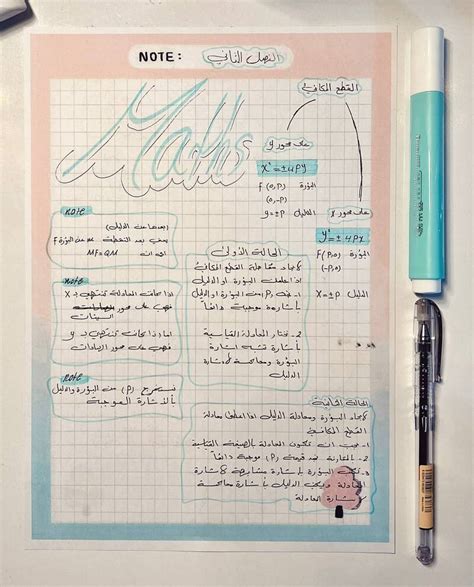 NOTE: الفصل الثاني
Maths
القطع المكافئ
على محور y
x² = ± 4py
البؤرة F (0,p)
(0,-p)
الدليل y = ± p
على محور x
y² = ± 4px
البؤرة F(p,0)
(-p,0)
الدليل x = ± p
note
بعد النقطة
عن البؤرة F
MF=QM
note
اذا كانت المعادلة تنتهي بـ x
فهي على محور
السينات
اما اذا كانت تنتهي بـ y
فهي على محور الصادات
note
نستخرج (p) من البؤرة والدليل
بالأشارة الموجبة
الحالة الأولى
لأيجاد معادلة القطع المكافئ
اذا علمت البؤرة او الدليل
1- نجد (p) من البؤرة او الدليل
بأشارة موجبة دائماً
2- نختار المعادلة القياسية
بأشارة تشبه اشارة
البؤرة ومعاكسة لأشارة
الدليل
الحالة الثانية
لأيجاد البؤرة ومعادلة الدليل اذا اعطى معادلة
القطع المكافئ
1- يجب ان تكون المعادلة بالصيغة القياسية
2- بالمقارنة نجد قيمة (p) موجبة دائماً
3- نكتب البؤرة بأشارة مشابهة لأشارة
المعادلة ونكتب الدليل بأشارة معاكسة
لأشارة المعادلة